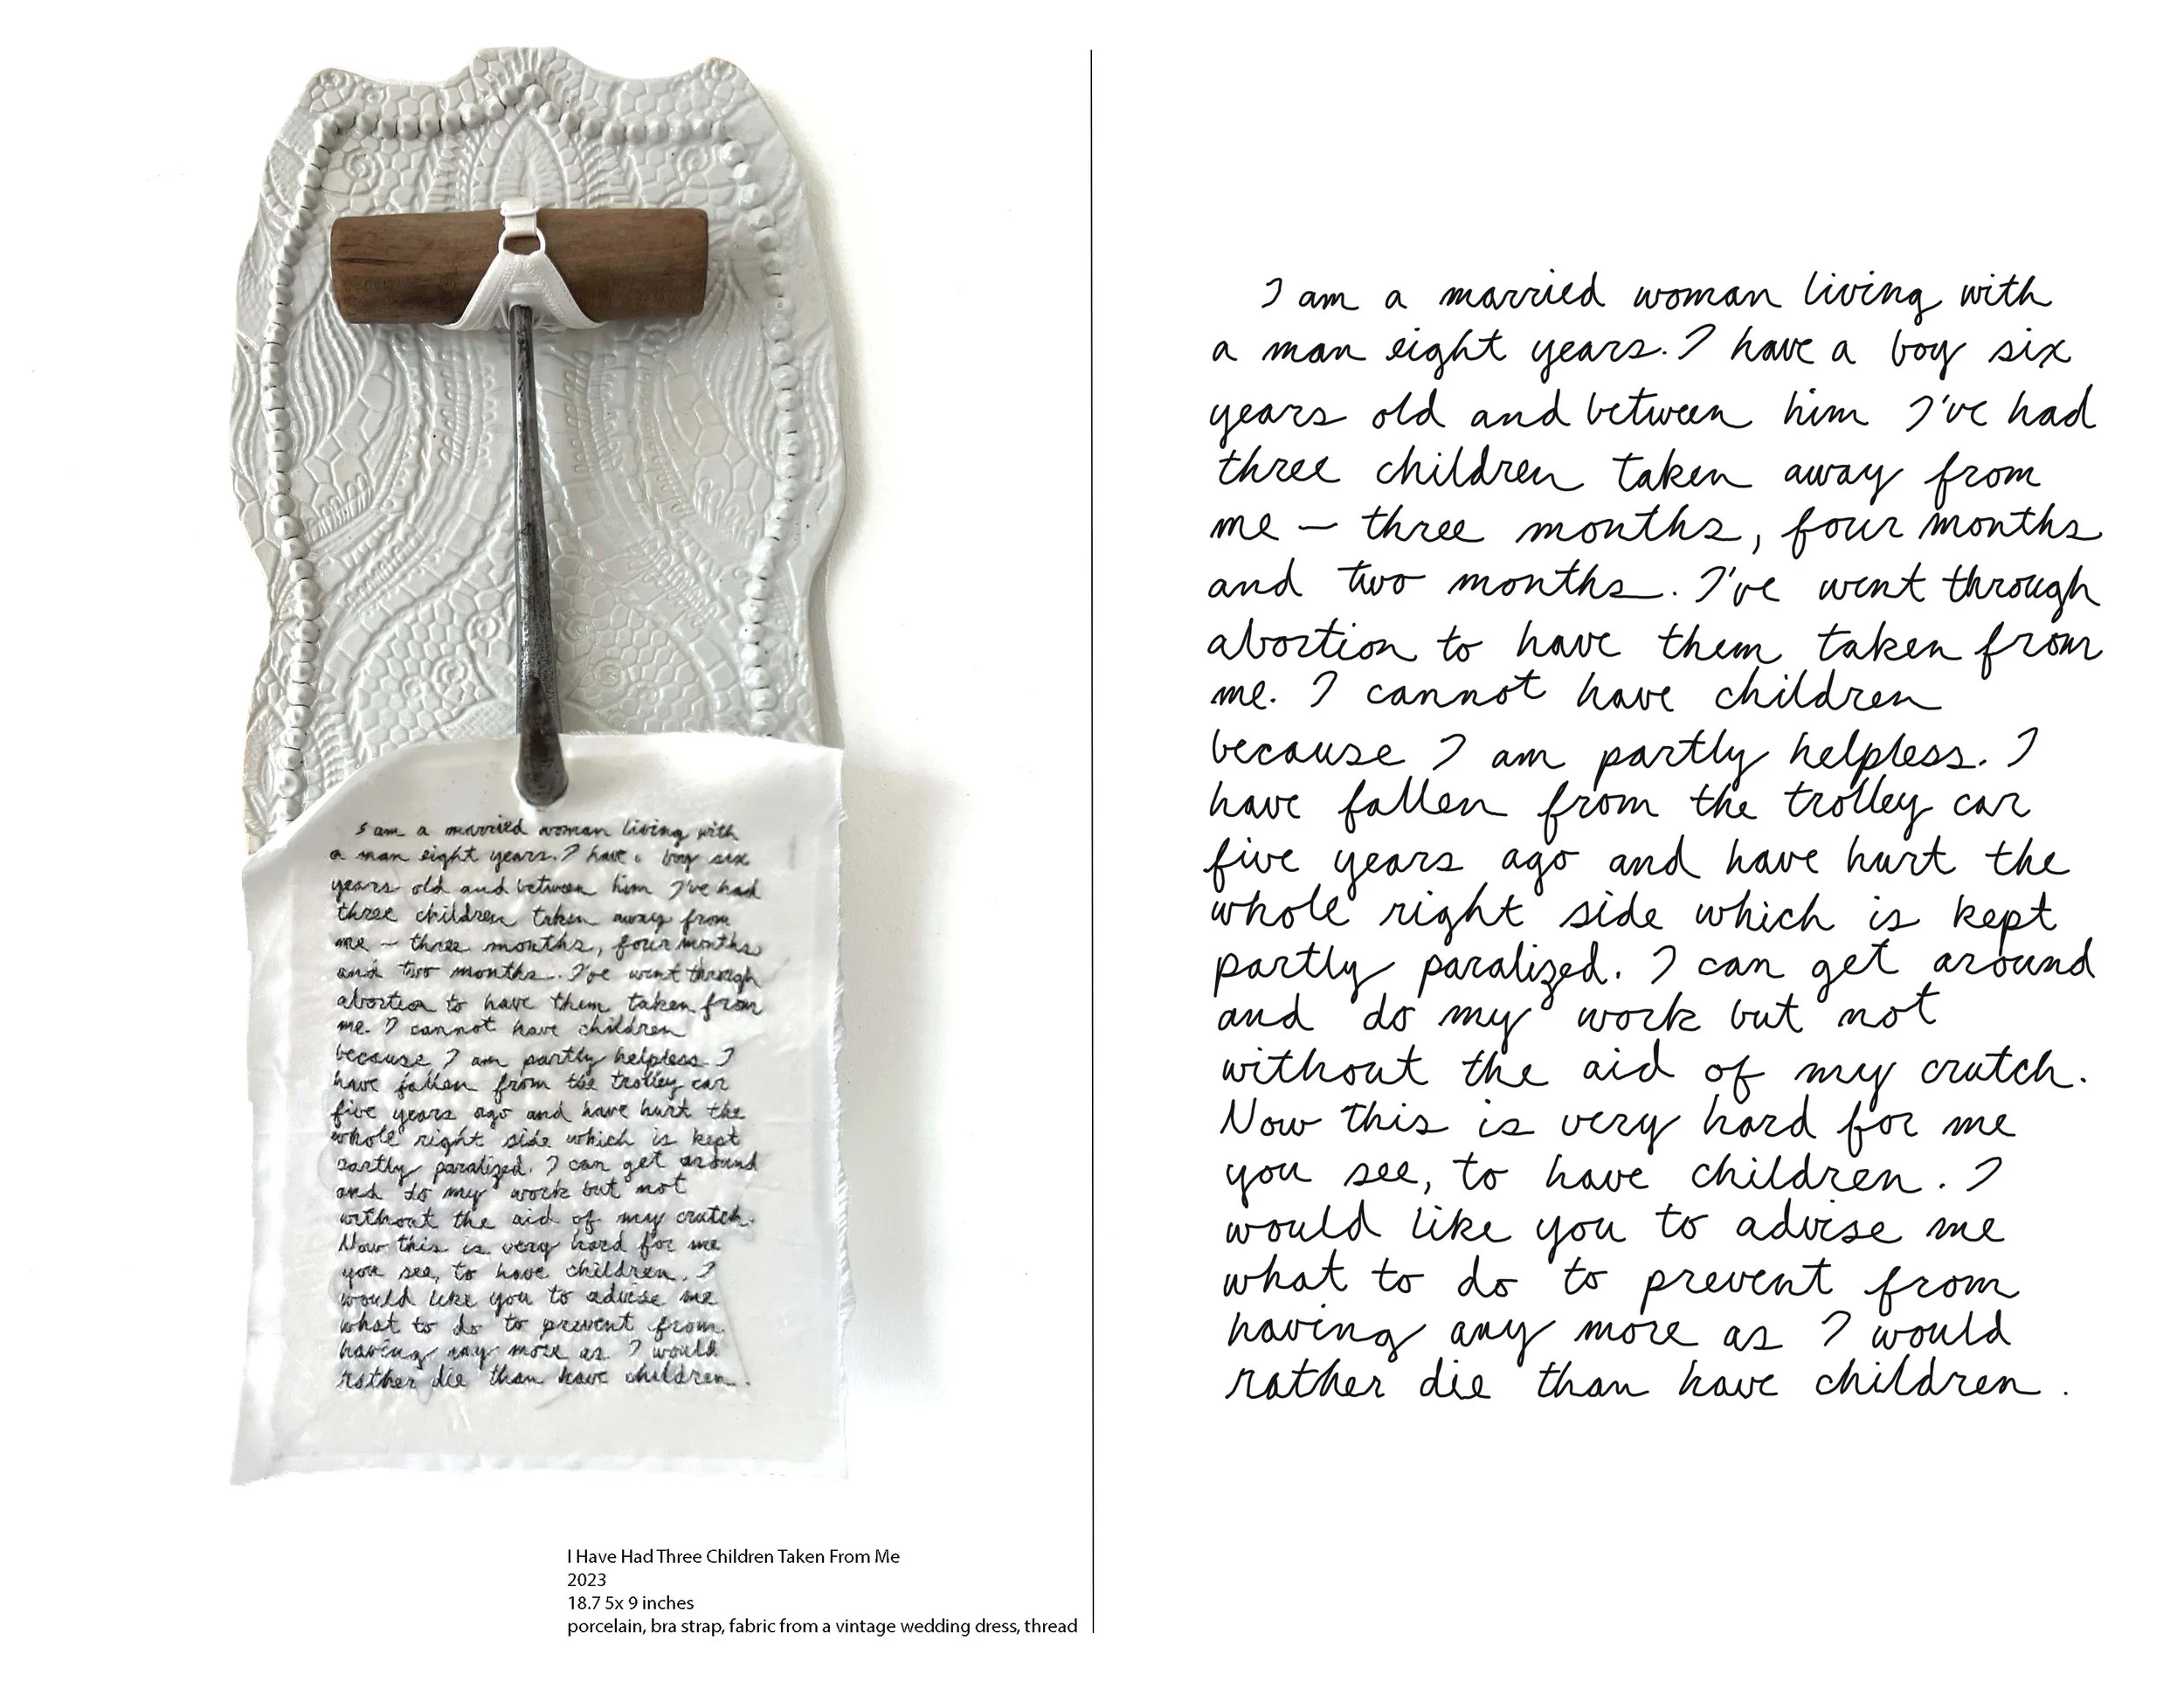 I am a married woman living with
a man eight years. I have a boy six
years old and between him I've had
three children taken away from
me — three months, four months
and two months. I've went through
abortion to have them taken from
me. I cannot have children
because I am partly helpless. I
have fallen from the trolley car
five years ago and have hurt the
whole right side which is kept
partly paralized. I can get around
and do my work but not
without the aid of my crutch.
Now this is very hard for me
you see, to have children. I
would like you to advise me
what to do to prevent from
having any more as I would
rather die than have children.
I Have Had Three Children Taken From Me
2023
18.7 5x 9 inches
porcelain, bra strap, fabric from a vintage wedding dress, thread
I am a married woman living with
a man eight years. I have a boy six
years old and between him I've had
three children taken away from
me — three months, four months
and two months. I've went through
abortion to have them taken from
me. I cannot have children
because I am partly helpless. I
have fallen from the trolley car
five years ago and have hurt the
whole right side which is kept
partly paralized. I can get around
and do my work but not
without the aid of my crutch.
Now this is very hard for me
you see, to have children. I
would like you to advise me
what to do to prevent from
having any more as I would
rather die than have children.